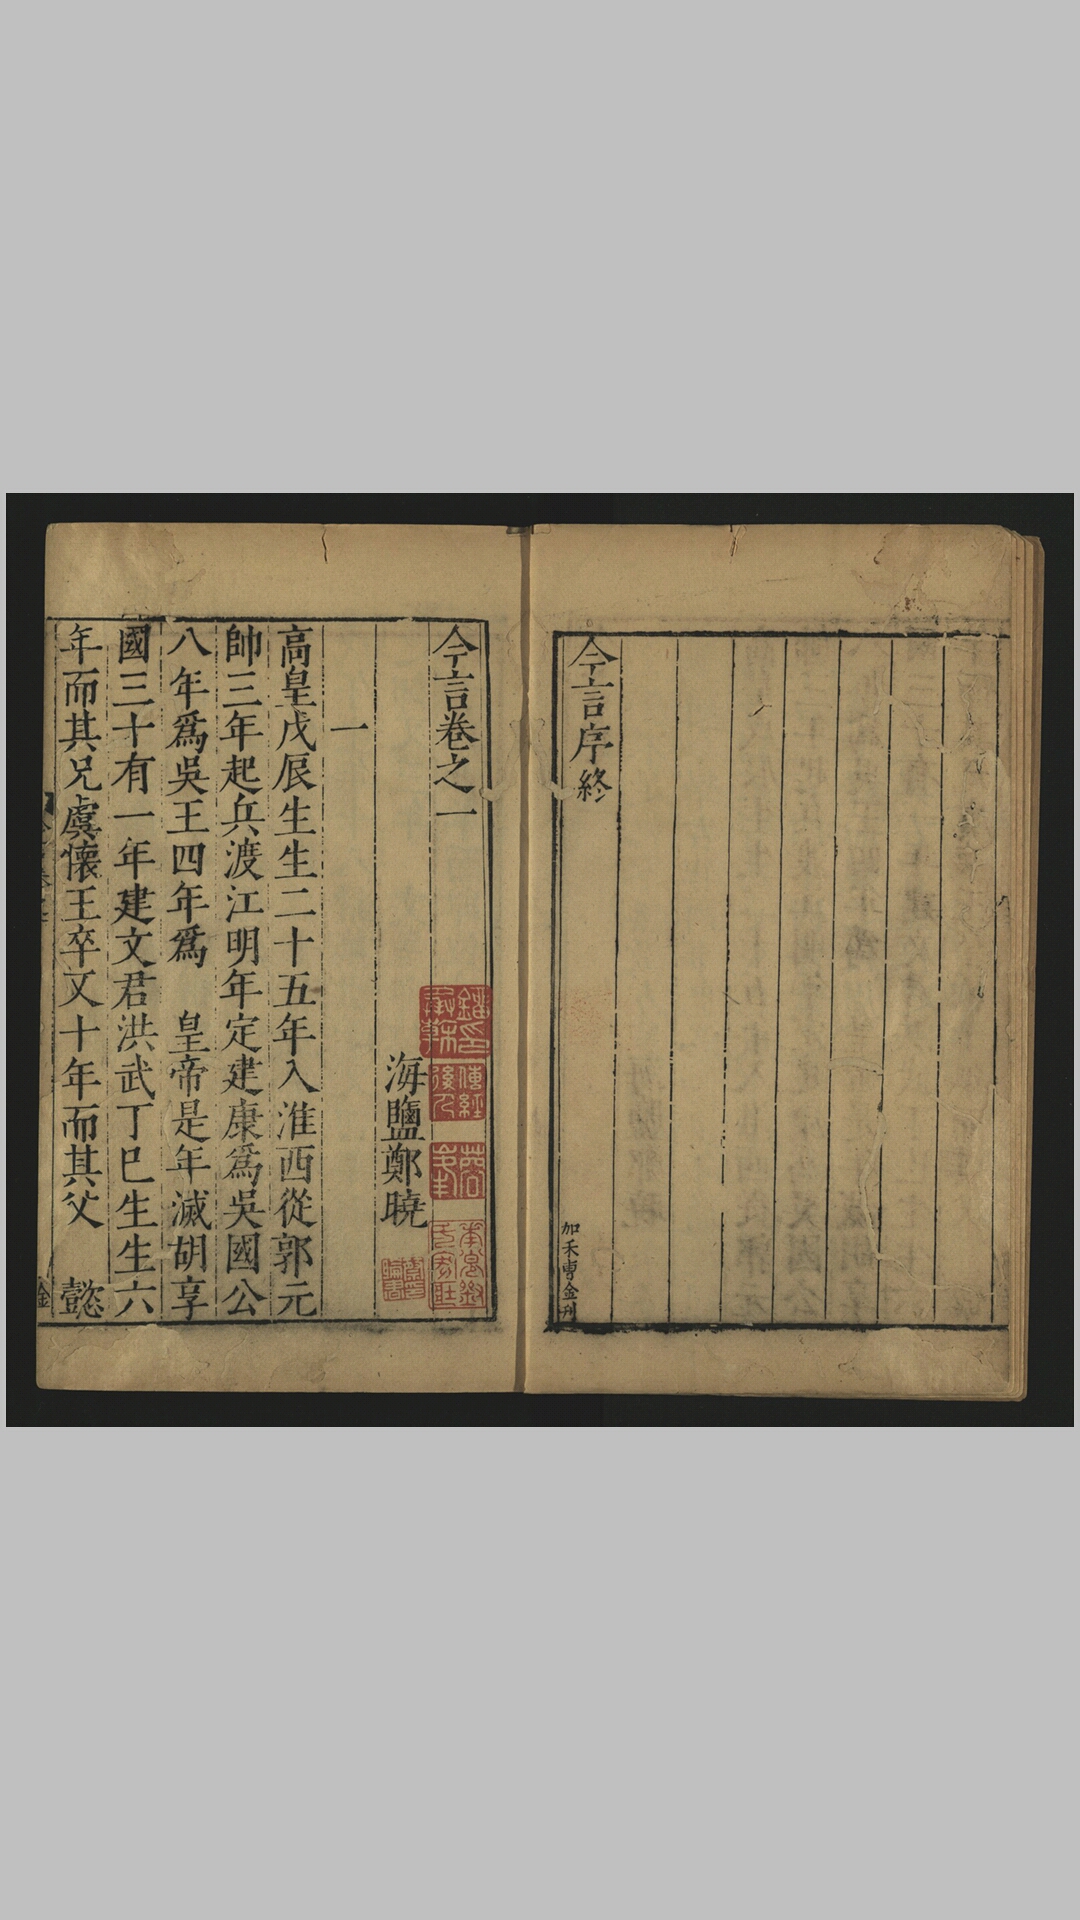 今言序終
加禾曹金刋
今言卷之一
海鹽鄭曉
一
高皇戊辰生生二十五年入淮西從郭元
帥三年起兵渡江明年定建康爲吳國公
八年爲吳王四年爲　皇帝是年滅胡享
國三十有一年建文君洪武丁巳生生六
年而其兄虞懷王卒又十年而其父　懿
金